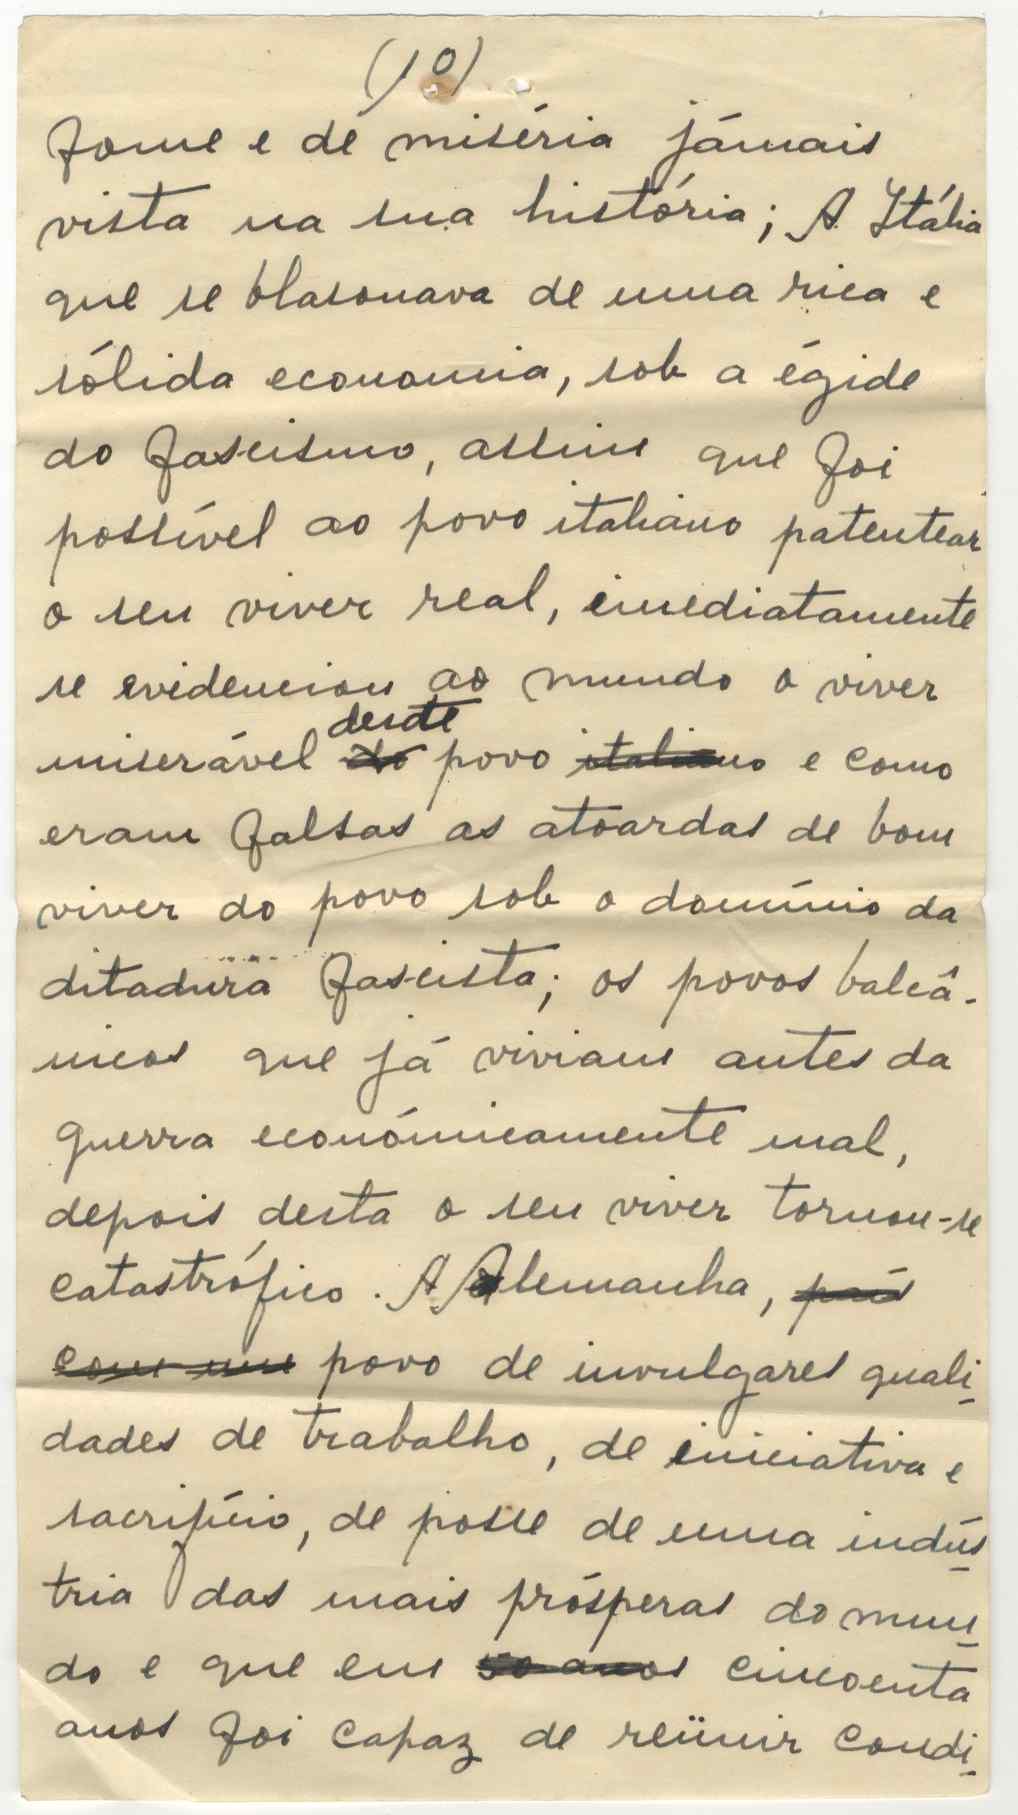 (10)
fome e de miséria jámais
vista na sua história; A Itália
que se blasonava de uma rica e
sólida economia, sob a égide
do fascismo, assim que foi
possível ao povo italiano patentear
o seu viver real, imediatamente
se evidenciou ao mundo o viver
deste
miserável do povo italiano e como
eram falsas as atoardas de bom
viver do povo sob o domínio da
ditadura fascista; os povos balcâ-
nicos que já viviam antes da
guerra económicamente mal,
depois desta o seu viver tornou-se
catastrófico. A Alemanha, país
com um povo de invulgares quali-
dades de trabalho, de iniciativa e
sacrifício, de posse de uma indús-
tria das mais prósperas do mun-
do e que em 50 anos cincoenta
anos foi capaz de reünir condi-